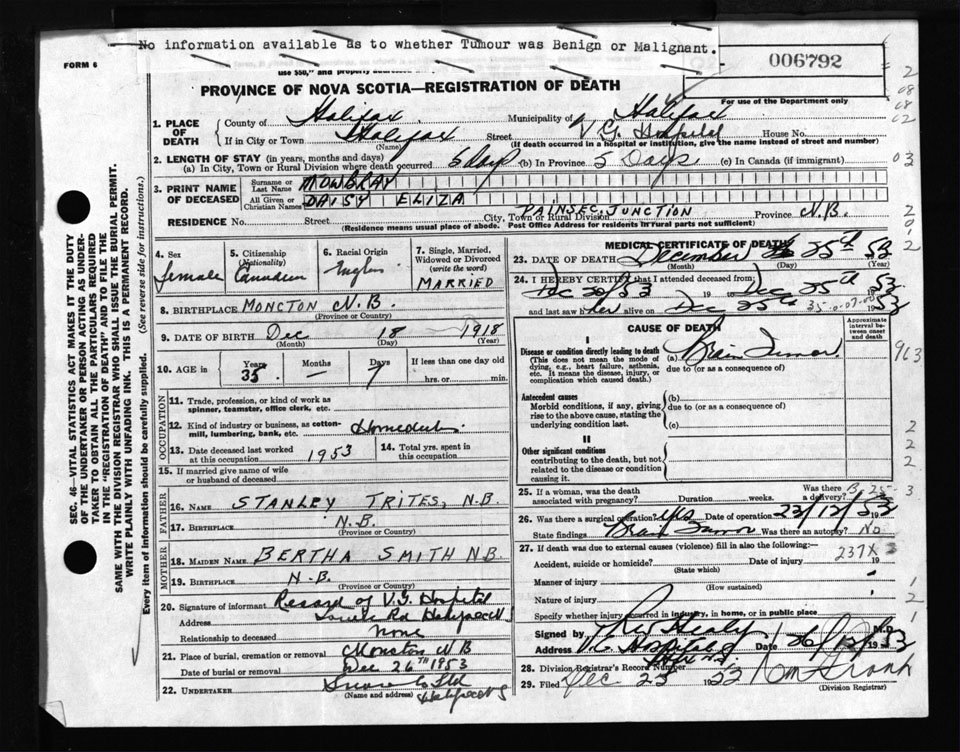 No information available as to whether Tumour was Benign or Malignant.
FORM 6
006792
PROVINCE OF NOVA SCOTIA—REGISTRATION OF DEATH
For use of the Department only
1. PLACE OF DEATH
County of Halifax Municipality of Halifax
If in City or Town Halifax Street V G Hospital House No.
(Name) (If death occurred in a hospital or institution, give the name instead of street and number)
2. LENGTH OF STAY (in years, months and days)
(a) In City, Town or Rural Division where death occurred 5 days (b) In Province 5 Days (c) In Canada (if immigrant)
3. PRINT NAME OF DECEASED
Surname or Last Name MOWBRAY
All Given or Christian Names DAISY ELIZA
RESIDENCE No. Street City, Town or Rural Division PAINSEC JUNCTION Province N.B.
(Residence means usual place of abode. Post Office Address for residents in rural parts not sufficient)
4. Sex female
5. Citizenship (Nationality) Canadian
6. Racial Origin English
7. Single, Married, Widowed or Divorced (write the word) MARRIED
8. BIRTHPLACE MONCTON N.B.
(Province or Country)
9. DATE OF BIRTH Dec 18 1918
(Month) (Day) (Year)
10. AGE in Years 35 Months — Days 7 If less than one day old
hrs. or min.
OCCUPATION
11. Trade, profession, or kind of work as spinner, teamster, office clerk, etc.
12. Kind of industry or business, as cotton-mill, lumbering, bank, etc.
13. Date deceased last worked at this occupation 1953
14. Total yrs. spent in this occupation
15. If married give name of wife or husband of deceased
FATHER
16. Name STANLEY TRITES, N.B.
17. Birthplace N.B.
MOTHER
18. Maiden Name BERTHA SMITH N.B.
19. Birthplace N.B.
(Province or Country)
20. Signature of informant Record of V.G. Hospital
Address Halifax
Relationship to deceased None
21. Place of burial, cremation or removal Moncton N B
Date of burial or removal Dec 26TH 1953
22. UNDERTAKER Snow Co Ltd
(Name and address) Halifax N S
MEDICAL CERTIFICATE OF DEATH
23. DATE OF DEATH December 25th 53
(Month) (Day) (Year)
24. I HEREBY CERTIFY that I attended deceased from:
Dec 20/53 19 to Dec 25th 1953
and last saw her alive on Dec 25th 1953
CAUSE OF DEATH
Approximate interval between onset and death
I
Disease or condition directly leading to death
(This does not mean the mode of dying, e.g., heart failure, asthenia, etc. It means the disease, injury, or complication which caused death.)
(a) Brain Tumor
due to (or as a consequence of)
Antecedent causes
Morbid conditions, if any, giving rise to the above cause, stating the underlying condition last.
(b)
due to (or as a consequence of)
(c)
II
Other significant conditions
contributing to the death, but not related to the disease or condition causing it.
25. If a woman, was the death associated with pregnancy? Duration weeks. Was there a delivery?
26. Was there a surgical operation? yes Date of operation 23/12/53
State findings Brain Tumor Was there an autopsy? No
27. If death was due to external causes (violence) fill in also the following:—
Accident, suicide or homicide? Date of injury 19
(State which)
237X
Manner of injury
(How sustained)
Nature of injury
Specify whether injury occurred in industry, in home, or in public place
Signed by Healy M.D.
Address V.G. Hospital Date 26/12/53
28. Division Registrar's Record Number
29. Filed Dec 25 1953
(Division Registrar)
SEC. 46—VITAL STATISTICS ACT MAKES IT THE DUTY OF THE UNDERTAKER OR PERSON ACTING AS UNDERTAKER TO OBTAIN ALL THE PARTICULARS REQUIRED IN THE "REGISTRATION OF DEATH" AND TO FILE THE SAME WITH THE DIVISION REGISTRAR WHO SHALL ISSUE THE BURIAL PERMIT.
WRITE PLAINLY WITH UNFADING INK. THIS IS A PERMANENT RECORD.
Every item of information should be carefully supplied. (See reverse side for instructions.)